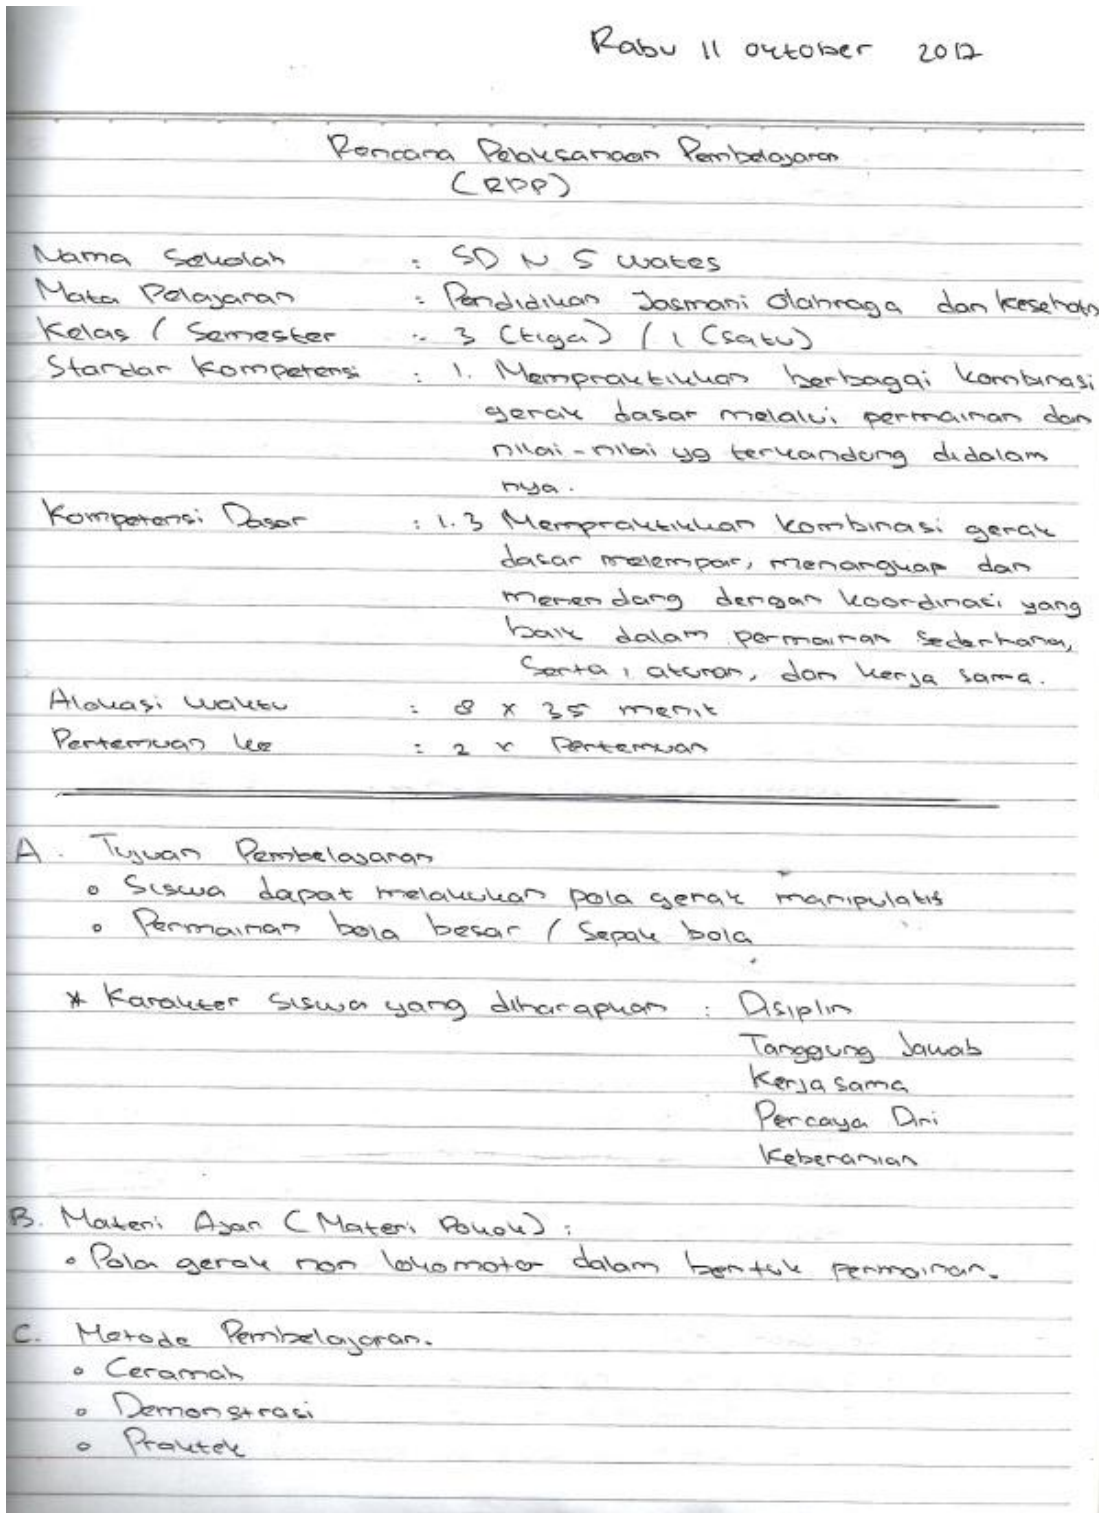 Rabu 11 oktober 2017
Rencana Pelaksanaan Pembelajaran
(RPP)
Nama Sekolah : SD N 5 Wates
Mata Pelajaran : Pendidikan Jasmani Olahraga dan Kesehatan
Kelas / Semester : 3 (tiga) / 1 (satu)
Standar Kompetensi : 1. Mempraktikkan berbagai kombinasi
gerak dasar melalui permainan dan
nilai-nilai yg terkandung didalam
nya.
Kompetensi Dasar : 1.3 Mempraktikkan kombinasi gerak
dasar melempar, menangkap dan
menendang dengan koordinasi yang
baik dalam permainan sederhana,
Serta, aturan, dan kerja sama.
Alokasi waktu : 8 x 35 menit
Pertemuan ke : 2 x Pertemuan
A. Tujuan Pembelajaran
• Siswa dapat melakukan pola gerak manipulatif
• Permainan bola besar / Sepak bola
* Karakter siswa yang diharapkan : Disiplin
Tanggung Jawab
Kerja sama
Percaya Diri
Keberanian
B. Materi Ajar (Materi Pokok) :
• Pola gerak non lokomotor dalam bentuk permainan.
C. Metode Pembelajaran.
• Ceramah
• Demonstrasi
• Praktek